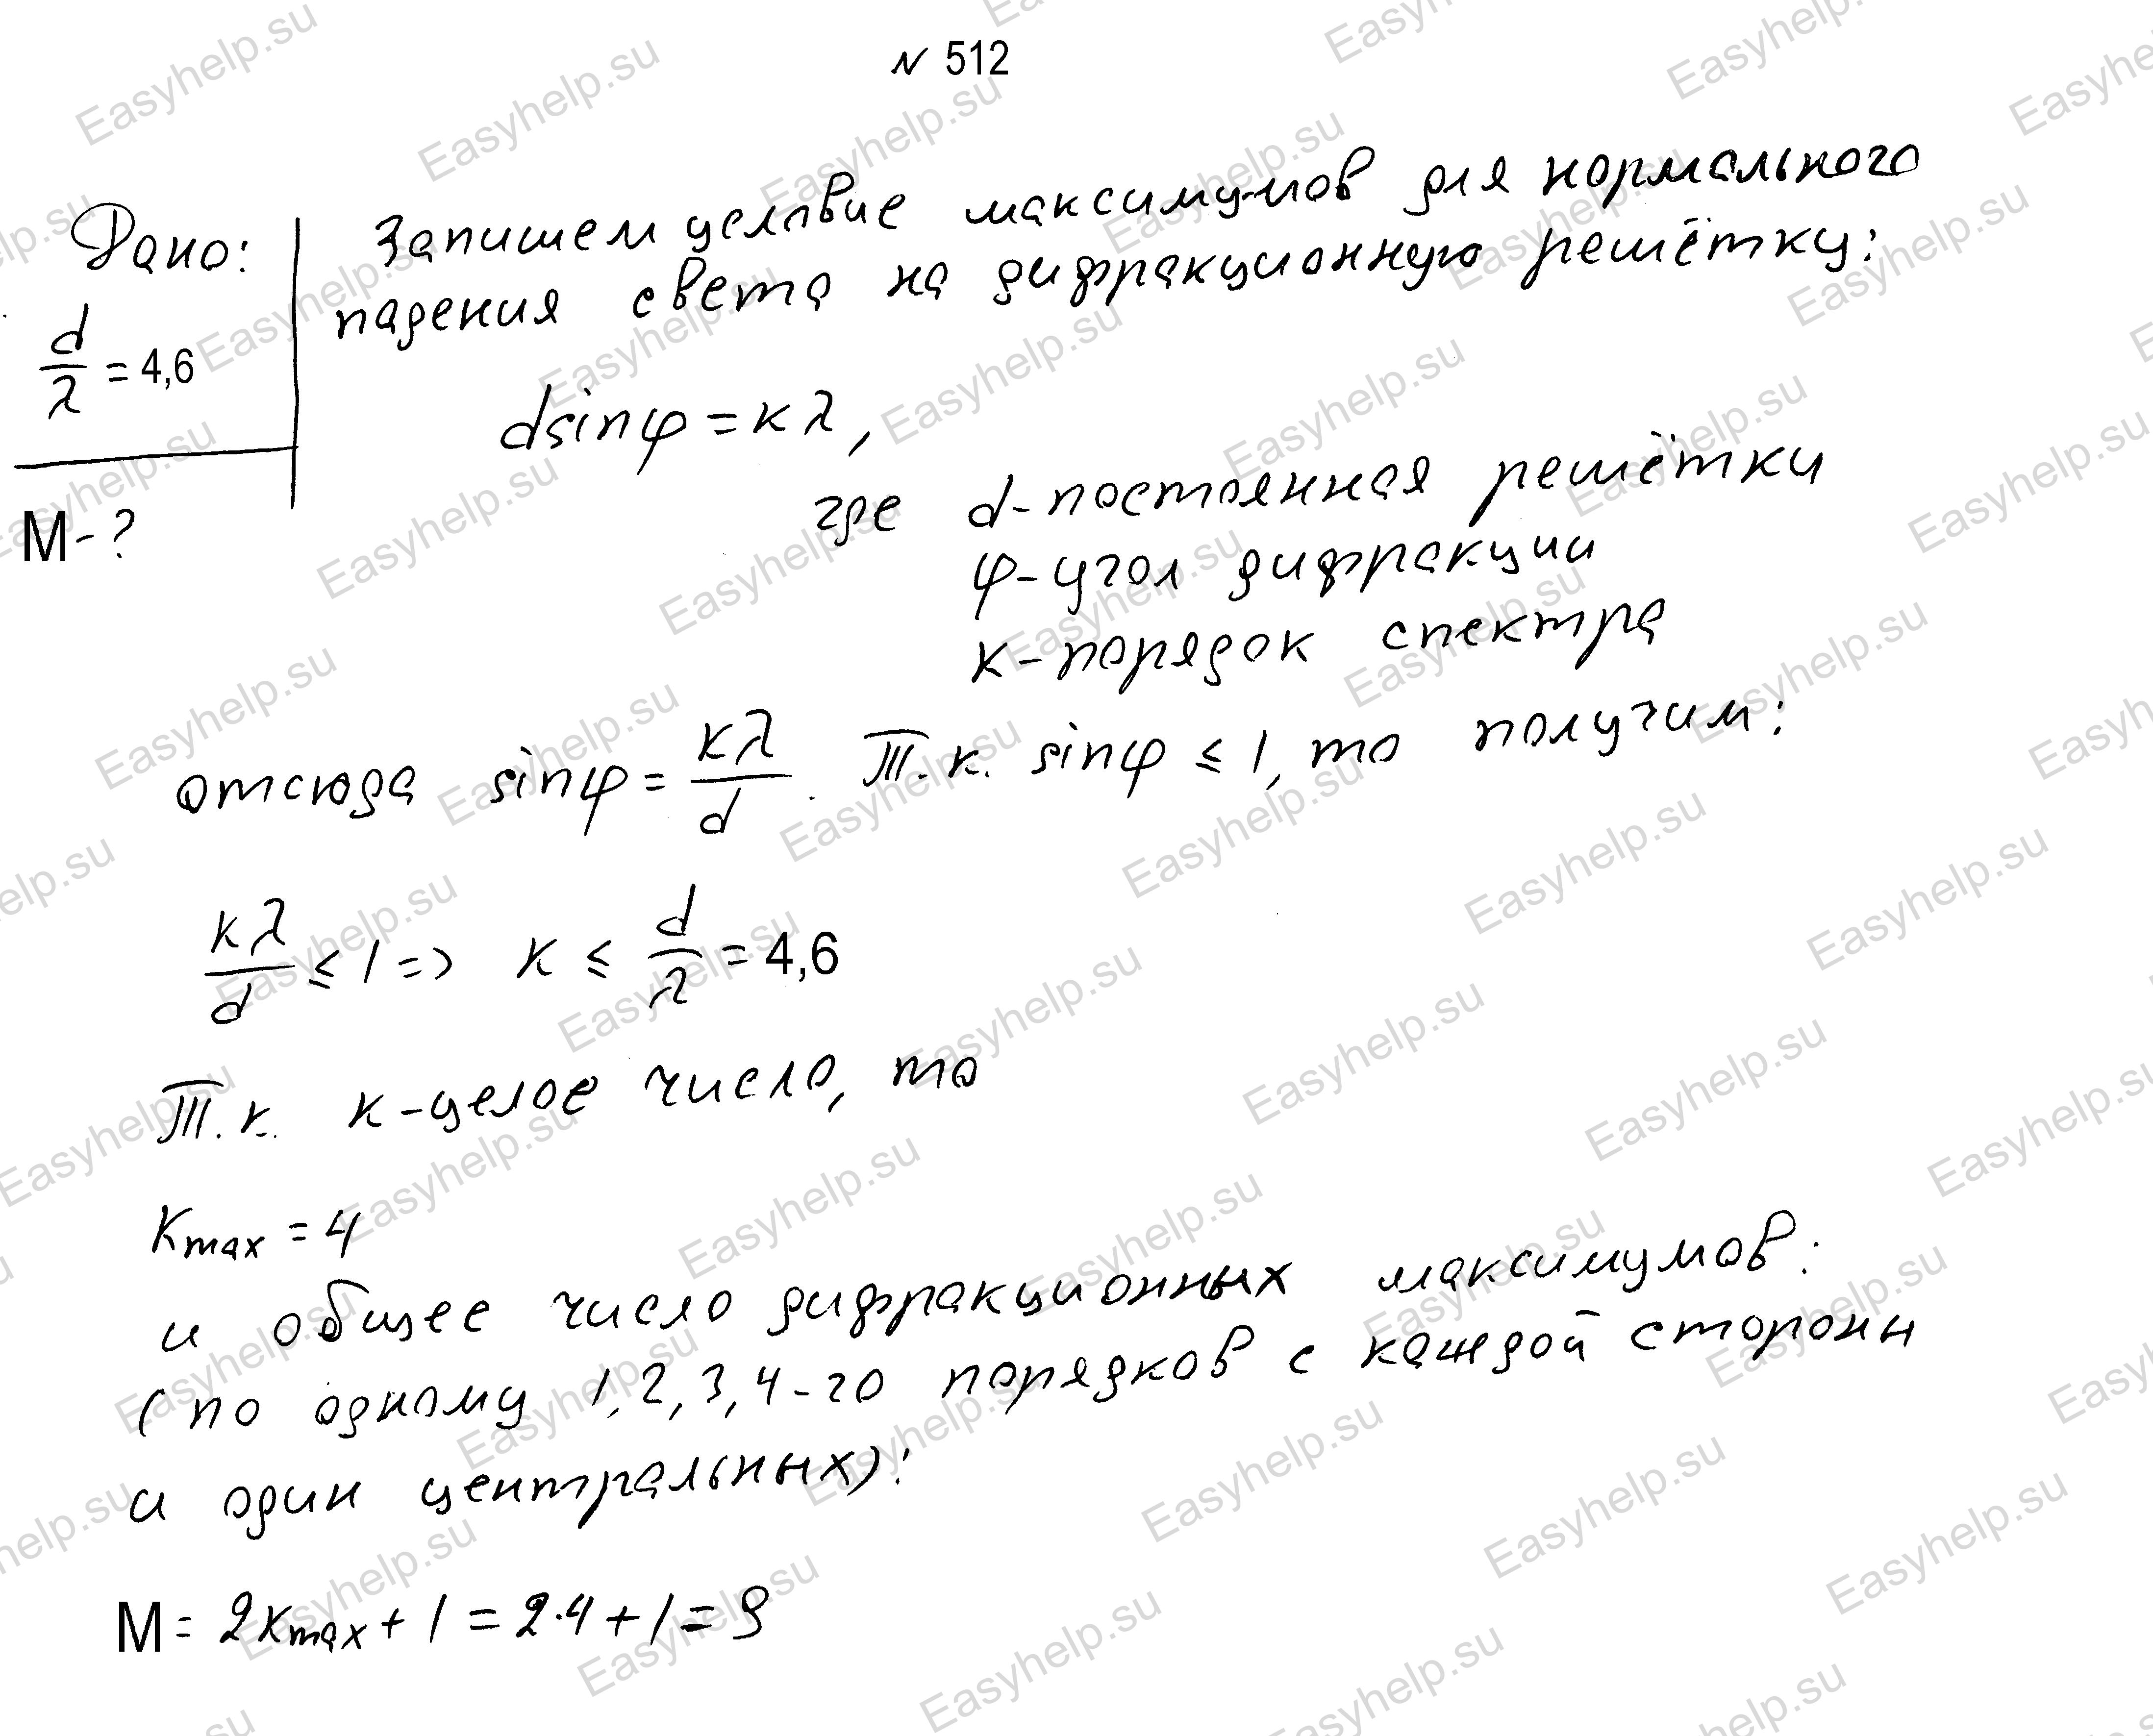 № 512
Дано:
d/λ = 4,6
M - ?
Запишем условие максимумов для нормального
падения света на дифракционную решётку:
dsinφ = kλ,
где d - постоянная решётки
φ - угол дифракции
k - порядок спектра
отсюда sinφ = kλ/d. Т.к. sinφ ≤ 1, то получим:
kλ/d ≤ 1 => k ≤ d/λ = 4,6
Т.к. k - целое число, то
Kmax = 4
и общее число дифракционных максимумов:
(по одному 1, 2, 3, 4-го порядков с каждой стороны
и один центральных):
M = 2Kmax + 1 = 2·4 + 1 = 9
Easyhelp.su